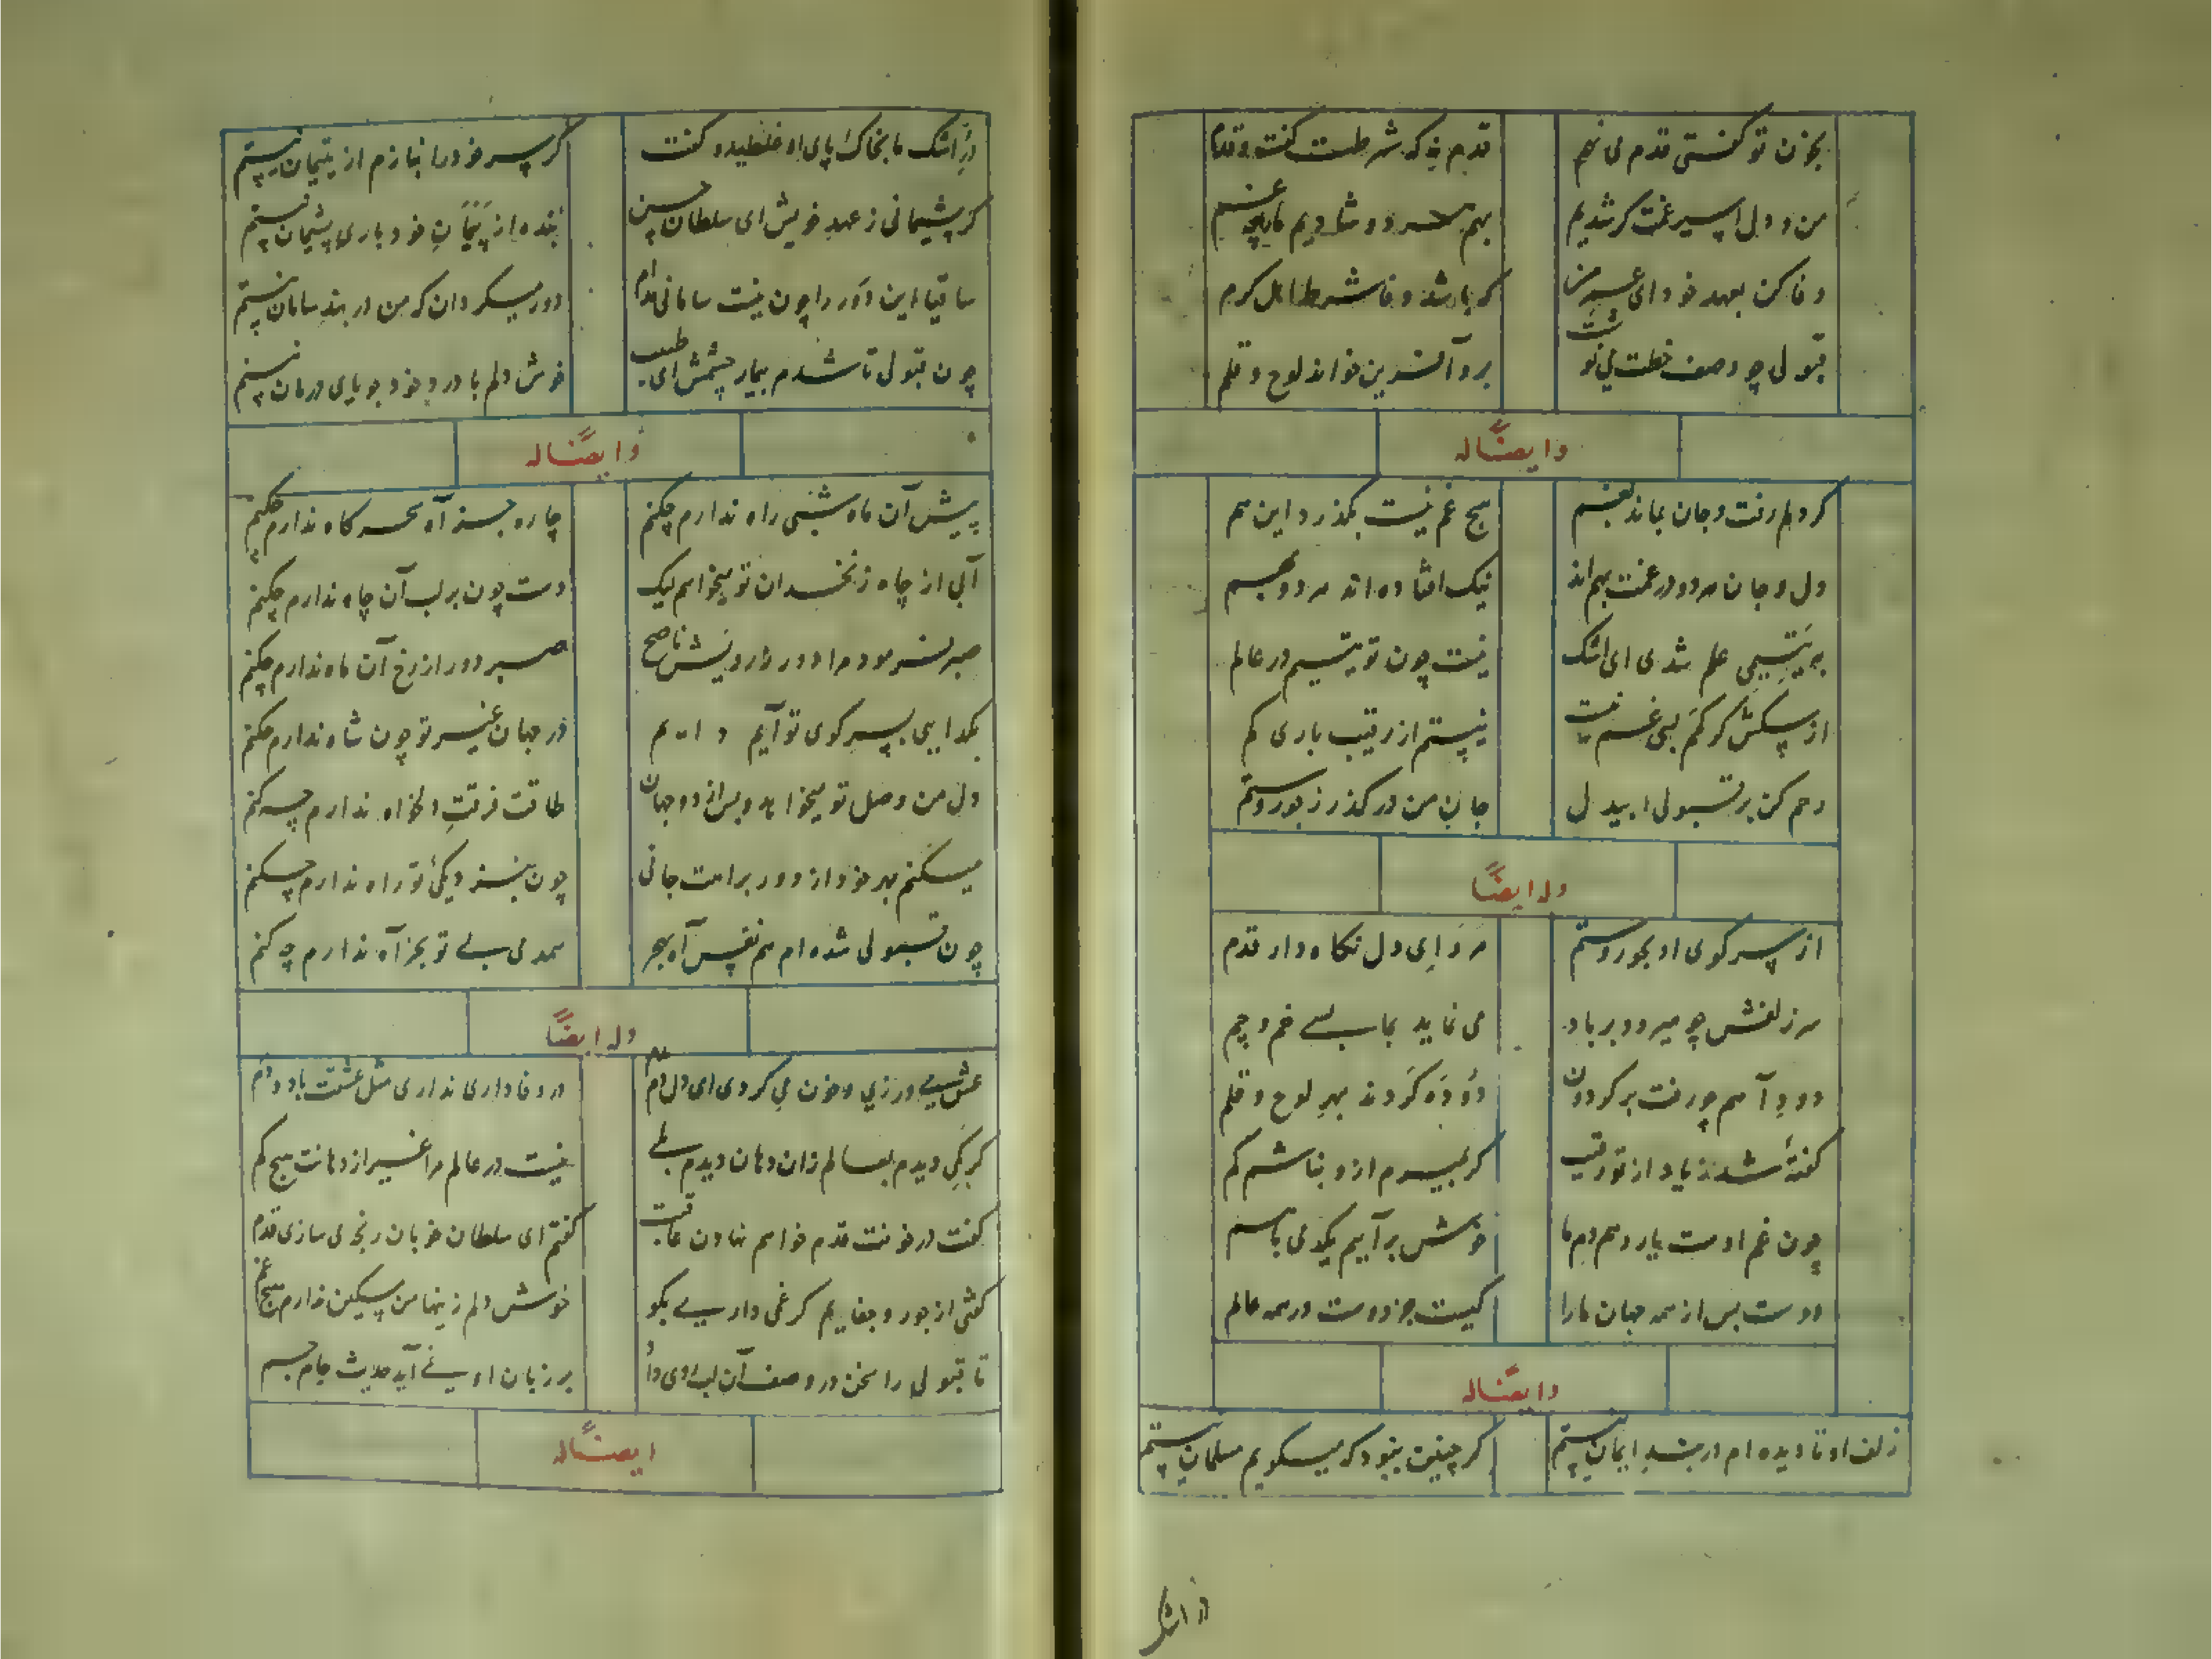 بخون تو گفتی قدم می نهم
قدم نه که شرطست گفت و قدم
من و دل اسیر غمت گر شدیم
بهم هر دو شادیم ما را چه غم
وفا کن بعهد خود ای عمر من
که باشد وفا شرط اهل کرم
قبولی چو وصف خطت می نوشت
برو آفرین خواند لوح و قلم
وایضاً له
گر دلم رفت و جان بماند بغم
هیچ غم نیست بگذرد این هم
دل و جان هر دو در غمت بهم اند
نیک افتاده اند هر دو بهم
به یتیمی علم شدی ای اشک
نیست چون تو یتیم در عالم
از سگش گر کمم بسی غم نیست
نیستم از رقیب باری کم
رحم کن بر قبولی بیدل
جان من در گذر ز جور و ستم
وله ایضاً
از سر کوی او بجور و ستم
مرو ای دل نگاه دار قدم
سر زلفش چو میرود بر باد
می نماید بما بسی خم و چم
دود آهم چو رفت بر گردون
دوده کردند بهر لوح و قلم
گفتهٔ شد زیاد از تو رقیب
گر بمیرم ازو نباشم کم
چون غم اوست یار و همدم ما
خوش برآییم یکدمی باهم
دوست بس از همه جهان ما را
کیست جز دوست در همه عالم
وایضاً له
زلف او تا دیده ام در بند ایمان نیستم
گر چنین نبود که میگویم مسلمان نیستم
در اشک
در اشک ما بخاک پای او غلطید و گفت
گر سر خود را نبازم از یتیمان نیستم
گر پشیمانی ز عهد خویش ای سلطان حسن
بنده از پیمان خود باری پشیمان نیستم
ساقیا این دور را چون نیست سامانی مدام
دور میگردان که من در بند سامان نیستم
چون قبولی تا شدم بیمار چشمش ای طبیب
خوش دلم با درد خود جویای درمان نیستم
وایضاً له
پیش آن ماه شبی راه ندارم چکنم
چاره جز آه سحرگاه ندارم چکنم
آبی از چاه زنخدان تو میخواهم لیک
دست چون بر لب آن چاه ندارم چکنم
صبر فرمود مرا دور ز رویش ناصح
صبر دور از رخ آن ماه ندارم چکنم
بگدایی بسر کوی تو آیم
در جهان غیر تو چون شاه ندارم چکنم
دل من وصل تو میخواهد و بس از دو جهان
طاقت فرقت دلخواه ندارم چه کنم
میکنم بهر خود از دور برامت جانی
چون بنزدیکی تو راه ندارم چکنم
چون قبولی شده ام هم نفس آه بهجر
همدمی بی تو بجز آه ندارم چه کنم
وله ایضاً
در وفاداری نداری مثل عشقت باد و دم
گر یکی دیدم بعالم زان دهان دیدم ولی
نیست در عالم مرا غیر از دهانت هیچ کم
گفت در خونت قدم خواهم نهادن عاقبت
گفتم ای سلطان خوبان رنجه می سازی قدم
گفتی از جور و جفایم گر غمی داری بگو
خوش دلم زینها من مسکین ندارم هیچ غم
تا قبولی را سخن در وصف آن لب
بر زبان او نمی آید حدیث جام جم
ایضاً له